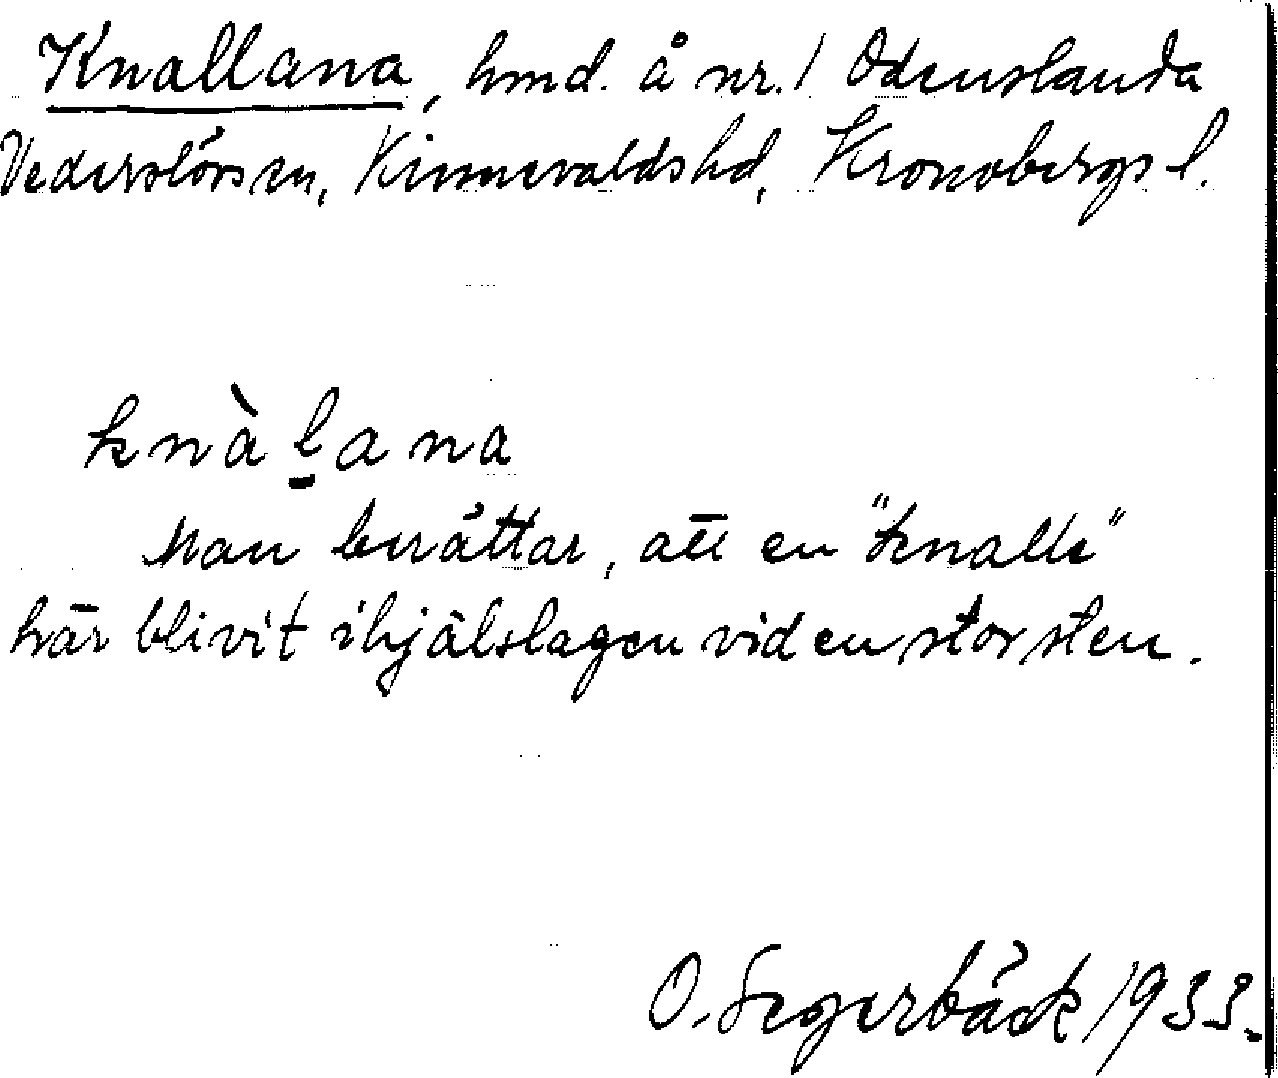 Knallana, hmd. å nr. 1 Odenslanda
Vederslövs sn, Kinnevalds hd, Kronobergs l.
knàl̠ana
Man berättar, att en "knalle"
här blivit ihjälslagen vid en stor sten.
O. Segerbäck 1933.